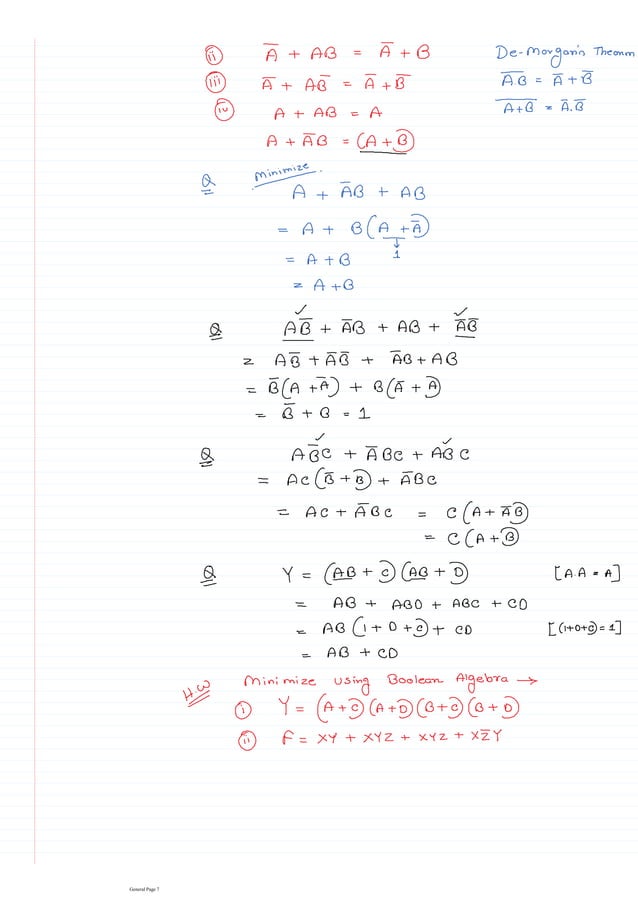 ii) A̅ + AB = A̅ + B
De-Morgan's Theorem
iii) A̅ + AB̅ = A̅ + B̅
A̅.̅B̅ = A̅ + B̅
iv) A + AB = A
A̅+̅B̅ = A̅.B̅
A + A̅B = (A + B)
Q Minimize
A + A̅B + AB
= A + B(A + A̅)
↓
1
= A + B
= A + B
Q AB̅ + A̅B + AB + A̅B̅
= AB̅ + A̅B̅ + A̅B + AB
= B̅(A + A̅) + B(A̅ + A)
= B̅ + B = 1
Q AB̅C + A̅BC + ABC
= AC(B̅ + B) + A̅BC
= AC + A̅BC = C(A + A̅B)
= C(A + B)
Q Y = (AB + C)(AB + D) [A.A = A]
= AB + ABD + ABC + CD
= AB(1 + D + C) + CD [(1+D+C) = 1]
= AB + CD
H.W Minimize using Boolean Algebra →
i) Y = (A + C)(A + D)(B + C)(B + D)
ii) F = XY + XYZ + XYZ̅ + X̅ZY
General Page 7